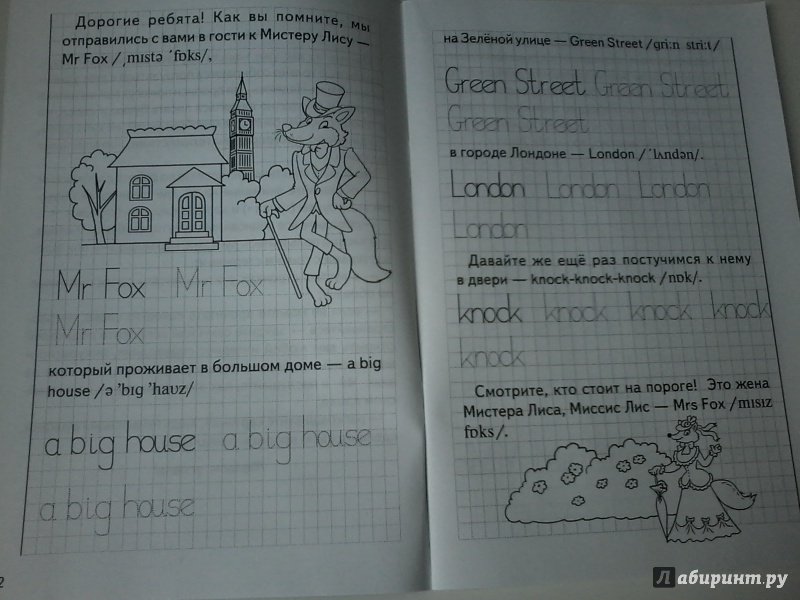 Дорогие ребята! Как вы помните, мы
отправились с вами в гости к Мистеру Лису —
Mr Fox /ˌmɪstə ˊfɒks/,
Mr Fox Mr Fox
Mr Fox
который проживает в большом доме — a big
house /ə ’bɪg ’haʊz/
a big house a big house
a big house
2
на Зелёной улице — Green Street /gri:n stri:t/
Green Street Green Street
Green Street
в городе Лондоне — London /ˊlʌndən/.
London London London
London
Давайте же ещё раз постучимся к нему
в двери — knock-knock-knock /nɒk/.
knock knock knock knock
knock
Смотрите, кто стоит на пороге! Это жена
Мистера Лиса, Миссис Лис — Mrs Fox /mɪsɪz
fɒks/.
Лабиринт.ру